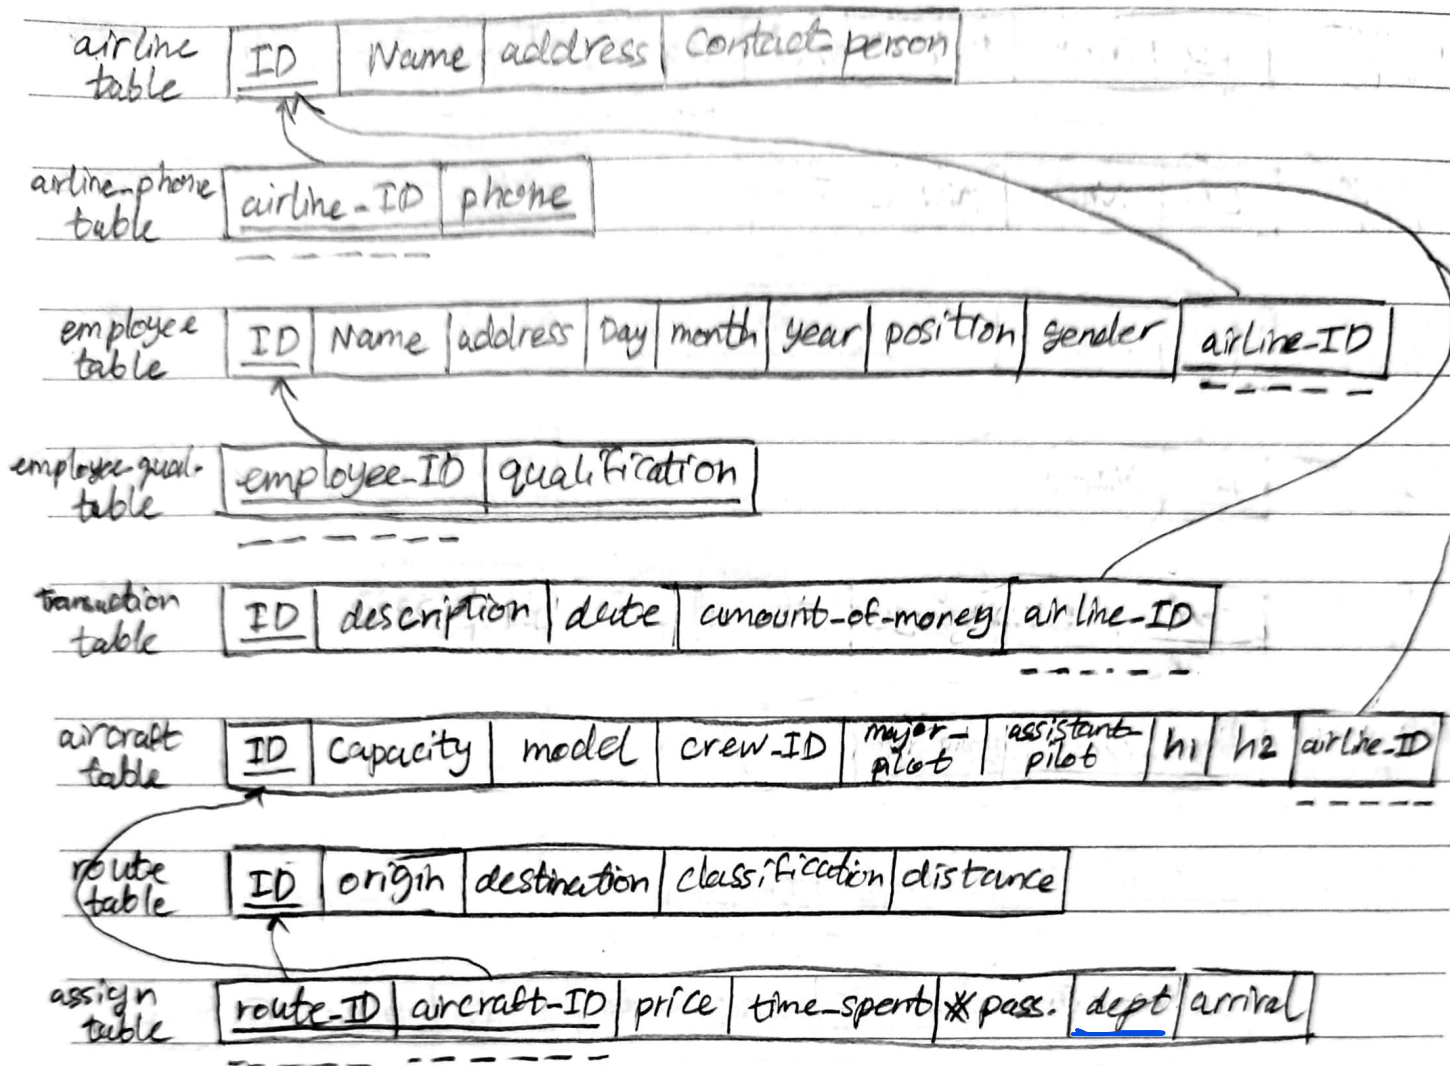 airline table ID Name address Contact-person
airline-phone table airline-ID phone
employee table ID Name address Day month year position gender airline-ID
employee-qual. table employee-ID qualification
transaction table ID description date amount-of-money airline-ID
aircraft table ID Capacity model crew-ID major-pilot assistant-pilot h1 h2 airline-ID
route table ID origin destination classification distance
assign table route-ID aircraft-ID price time-spent * pass. dept arrival